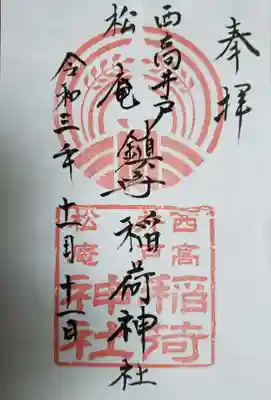 奉拝
西高井戸
松庵鎮守稲荷神社
令和三年十一月十一日
西高
井戸
松庵
稲荷
神社